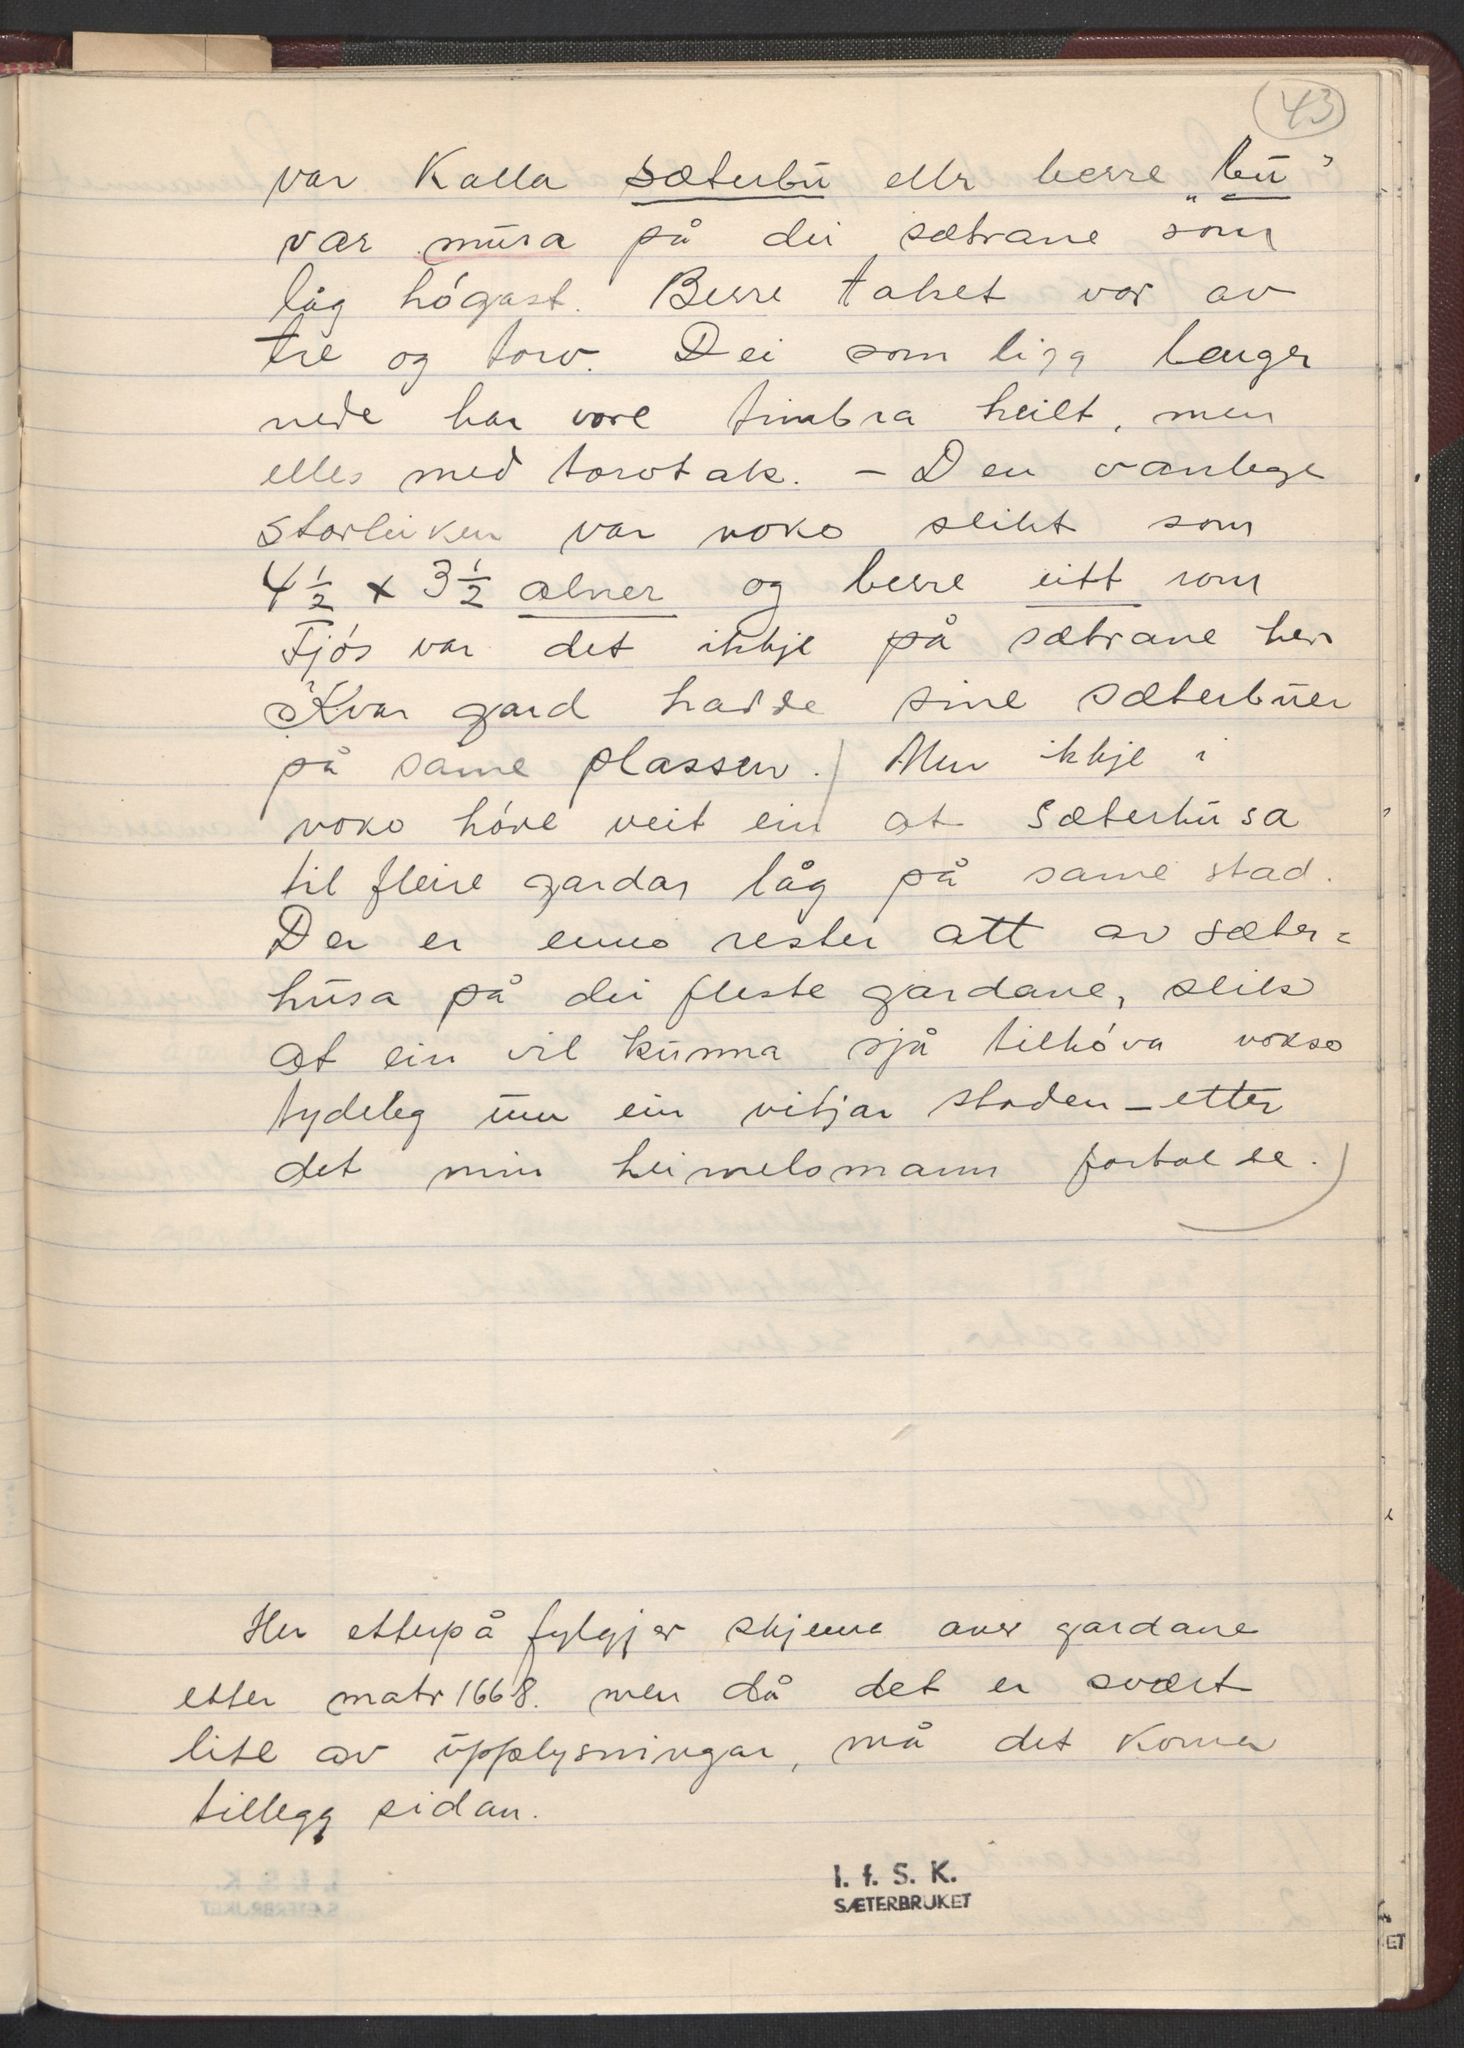 43
var kalla sæterbu eller berre „bu”
var mura på dei sætrane som
låg högast. Berre taket var av
tre og torv. Dei som ligg lenger
nede har vore timbra heilt, men
elles med torvtak. – Den vanlege
storleiken var noko slikt som
4 1/2 x 3 1/2 alner og berre eitt rom
Fjós var det ikkje på sætrane her
Kvar gard hadde sine sæterbuer
på same plassen. / Men ikkje i
noko höve veit ein at sæterhusa
til fleire gardar låg på same stad.
Der er enno rester att av sæter=
husa på dei fleste gardane, slik
at ein vil kunna sjå tilhóva nokso
tydeleg um ein vitjar staden – etter
det min heimelsmann fortalde. )
Her etterpå fylgjer skjema over gardane
etter matr 1668. men då det er svært
lite av upplysningar, må det koma
tillegg sidan.
I. f. S. K.
SÆTERBRUKET